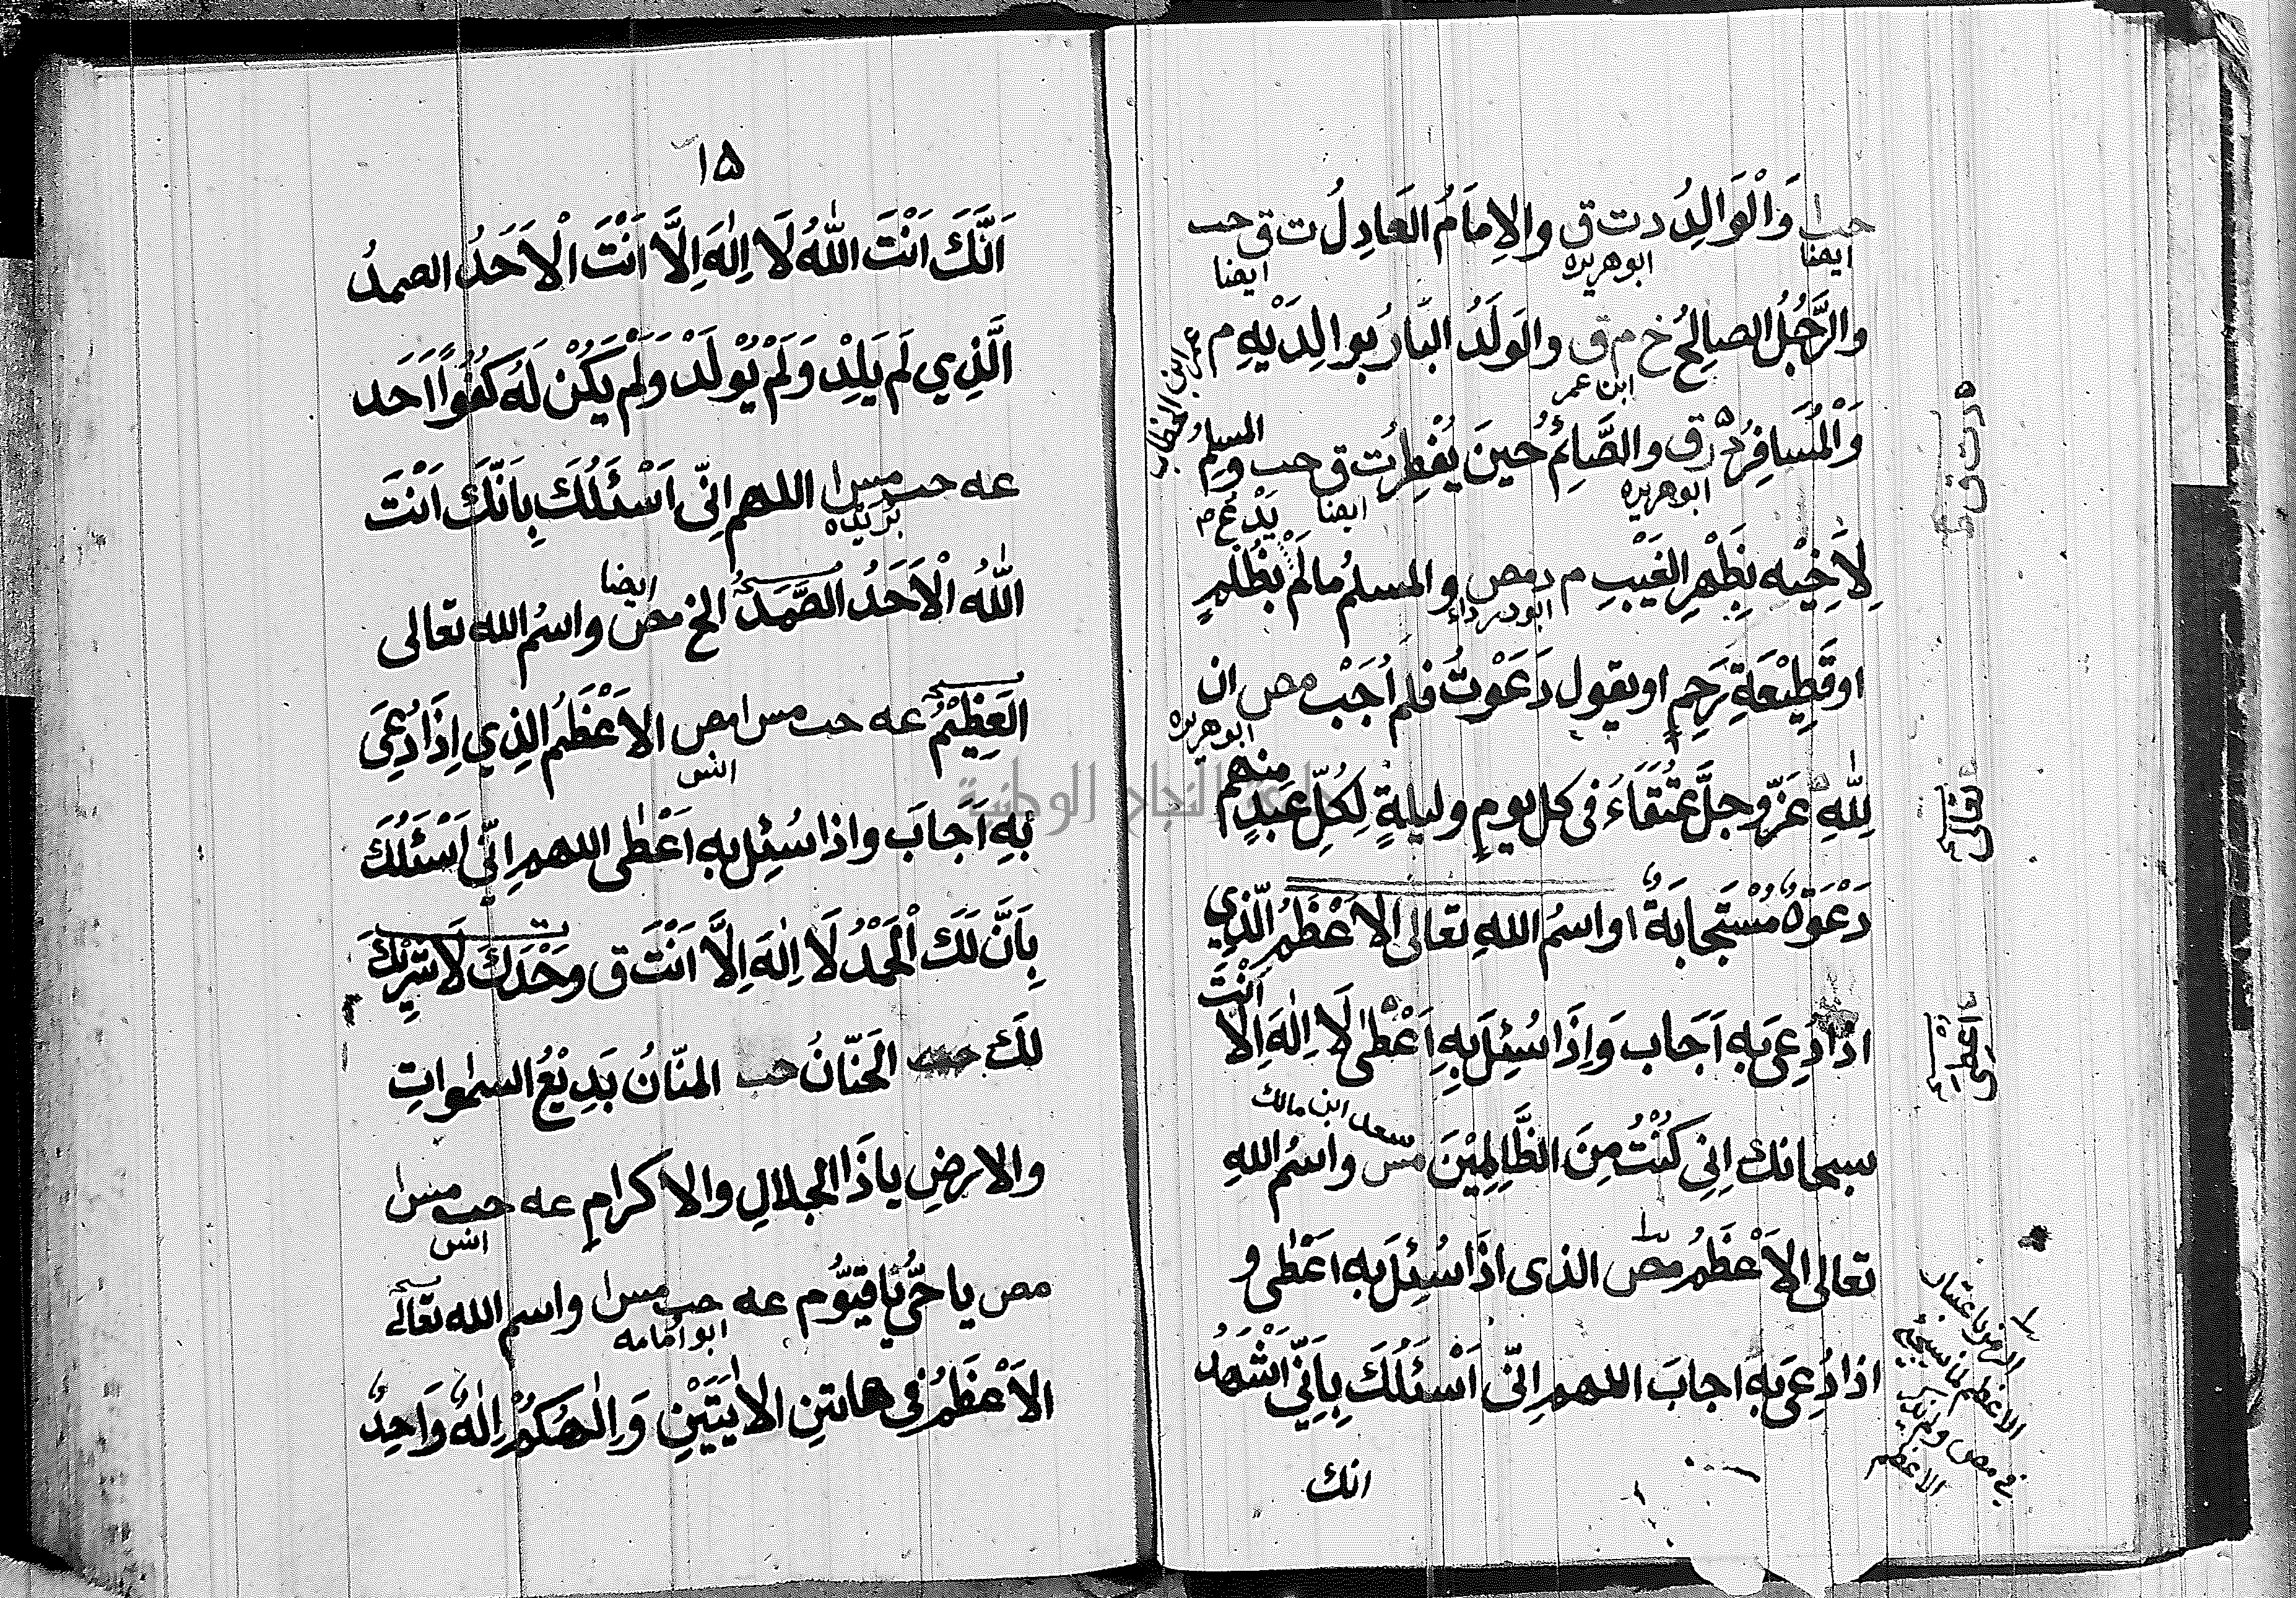 حب ا وَالْوَالِدُ د ت ق والاِمَامُ العَادِلُ ت ق حب
ايضا ابو هريره ايضا
والرَّجُلُ الصالِحُ خ م ق والوَلَدُ البَارُ بوالِدَيْهِ م
ابن عمر
عمر ابن الخطاب
وَالْمُسَافِرُ د ر ق والصَّائِمُ حينَ يُفْطِرُ ت ق حب والمسلمُ
ابو هريره ايضا
لِاَخِيْهِ بِظَهْرِ الغَيْبِ م د مص والمسلمُ مالَمْ يدعُ بِظُلْمٍ
ابو درداء
او قَطِيْعَةِ رَحِمٍ او يقول دَعَوْتُ فلم اُجَبْ مص ان
ابو هريره
لِلّٰهِ عَزَّ وجلَّ عُتَقَاءَ فى كل يومٍ وليلةٍ لِكُلِّ عَبْدٍ منهم
دَعْوَةٌ مُسْتَجَابَةٌ ا واسْمُ اللهِ تعالى الاَعْظَمُ الَّذِي
اذا دُعِىَ بِهِ اَجَاب وَاِذَا سُئِلَ بِهِ اَعْطٰى لَا اِلٰهَ اِلَّا اَنْتَ
سبحانك اِنِى كُنْتُ مِنَ الظَّالِمِيْنَ مس واسْمُ اللهِ
سعد ابن مالك
تعالى الاَعْظَمُ مص الذى اذَا سُئِلَ بِهِ اَعْطٰى و
اذا دُعِىَ بِهِ اجابَ اللهم اِنّى اَسْئَلُكَ بِاَنِّى اَشْهَدُ
انك
د ت ق
تعالى
اعطى
الاعظم
في مص
الاعظم
١٥
اَنَّكَ اَنْتَ اللهُ لَا اِلٰهَ اِلَّا اَنْتَ الْاَحَدُ الصمدُ
الَّذِي لَم يَلِدْ وَلَمْ يُوْلَدْ وَلَمْ يَكُنْ لَهُ كُفُوًا اَحَد
عه حب مس ا اللهم اِنّى اَسْئَلُكَ بِاَنَّكَ اَنْتَ
بريده
اللهُ الْاَحَدُ الصَّمَدُ الخ مص واسمُ الله تعالى
ايضا
العَظِيْمُ عه حب مس ا مص الاَعْظَمُ الذِي اِذَا دُعِىَ
انس
بِهِ اَجَابَ واذا سُئِلَ به اَعْطٰى اللهم اِنِّى اَسْئَلُكَ
بِاَنَّ لَكَ الْحَمْدُ لَا اِلٰهَ اِلَّا اَنْتَ ق وَحْدَكَ لَا شَرِيْكَ
لَكَ الحَنّانُ حب المنّانُ بَدِيْعُ السمٰواتِ
والارضِ ياذَا الجلالِ والاكرامِ عه حب مس ا
انس
مص يا حَىُّ يَا قَيُّوم عه حب مس ا واسم الله تعالى
ابو امامه
الاَعْظَمُ فِى هاتينِ الاٰيَتَيْنِ وَاِلٰهُكُمْ اِلٰهٌ وَاحِدٌ
جامعة النجاح الوطنية